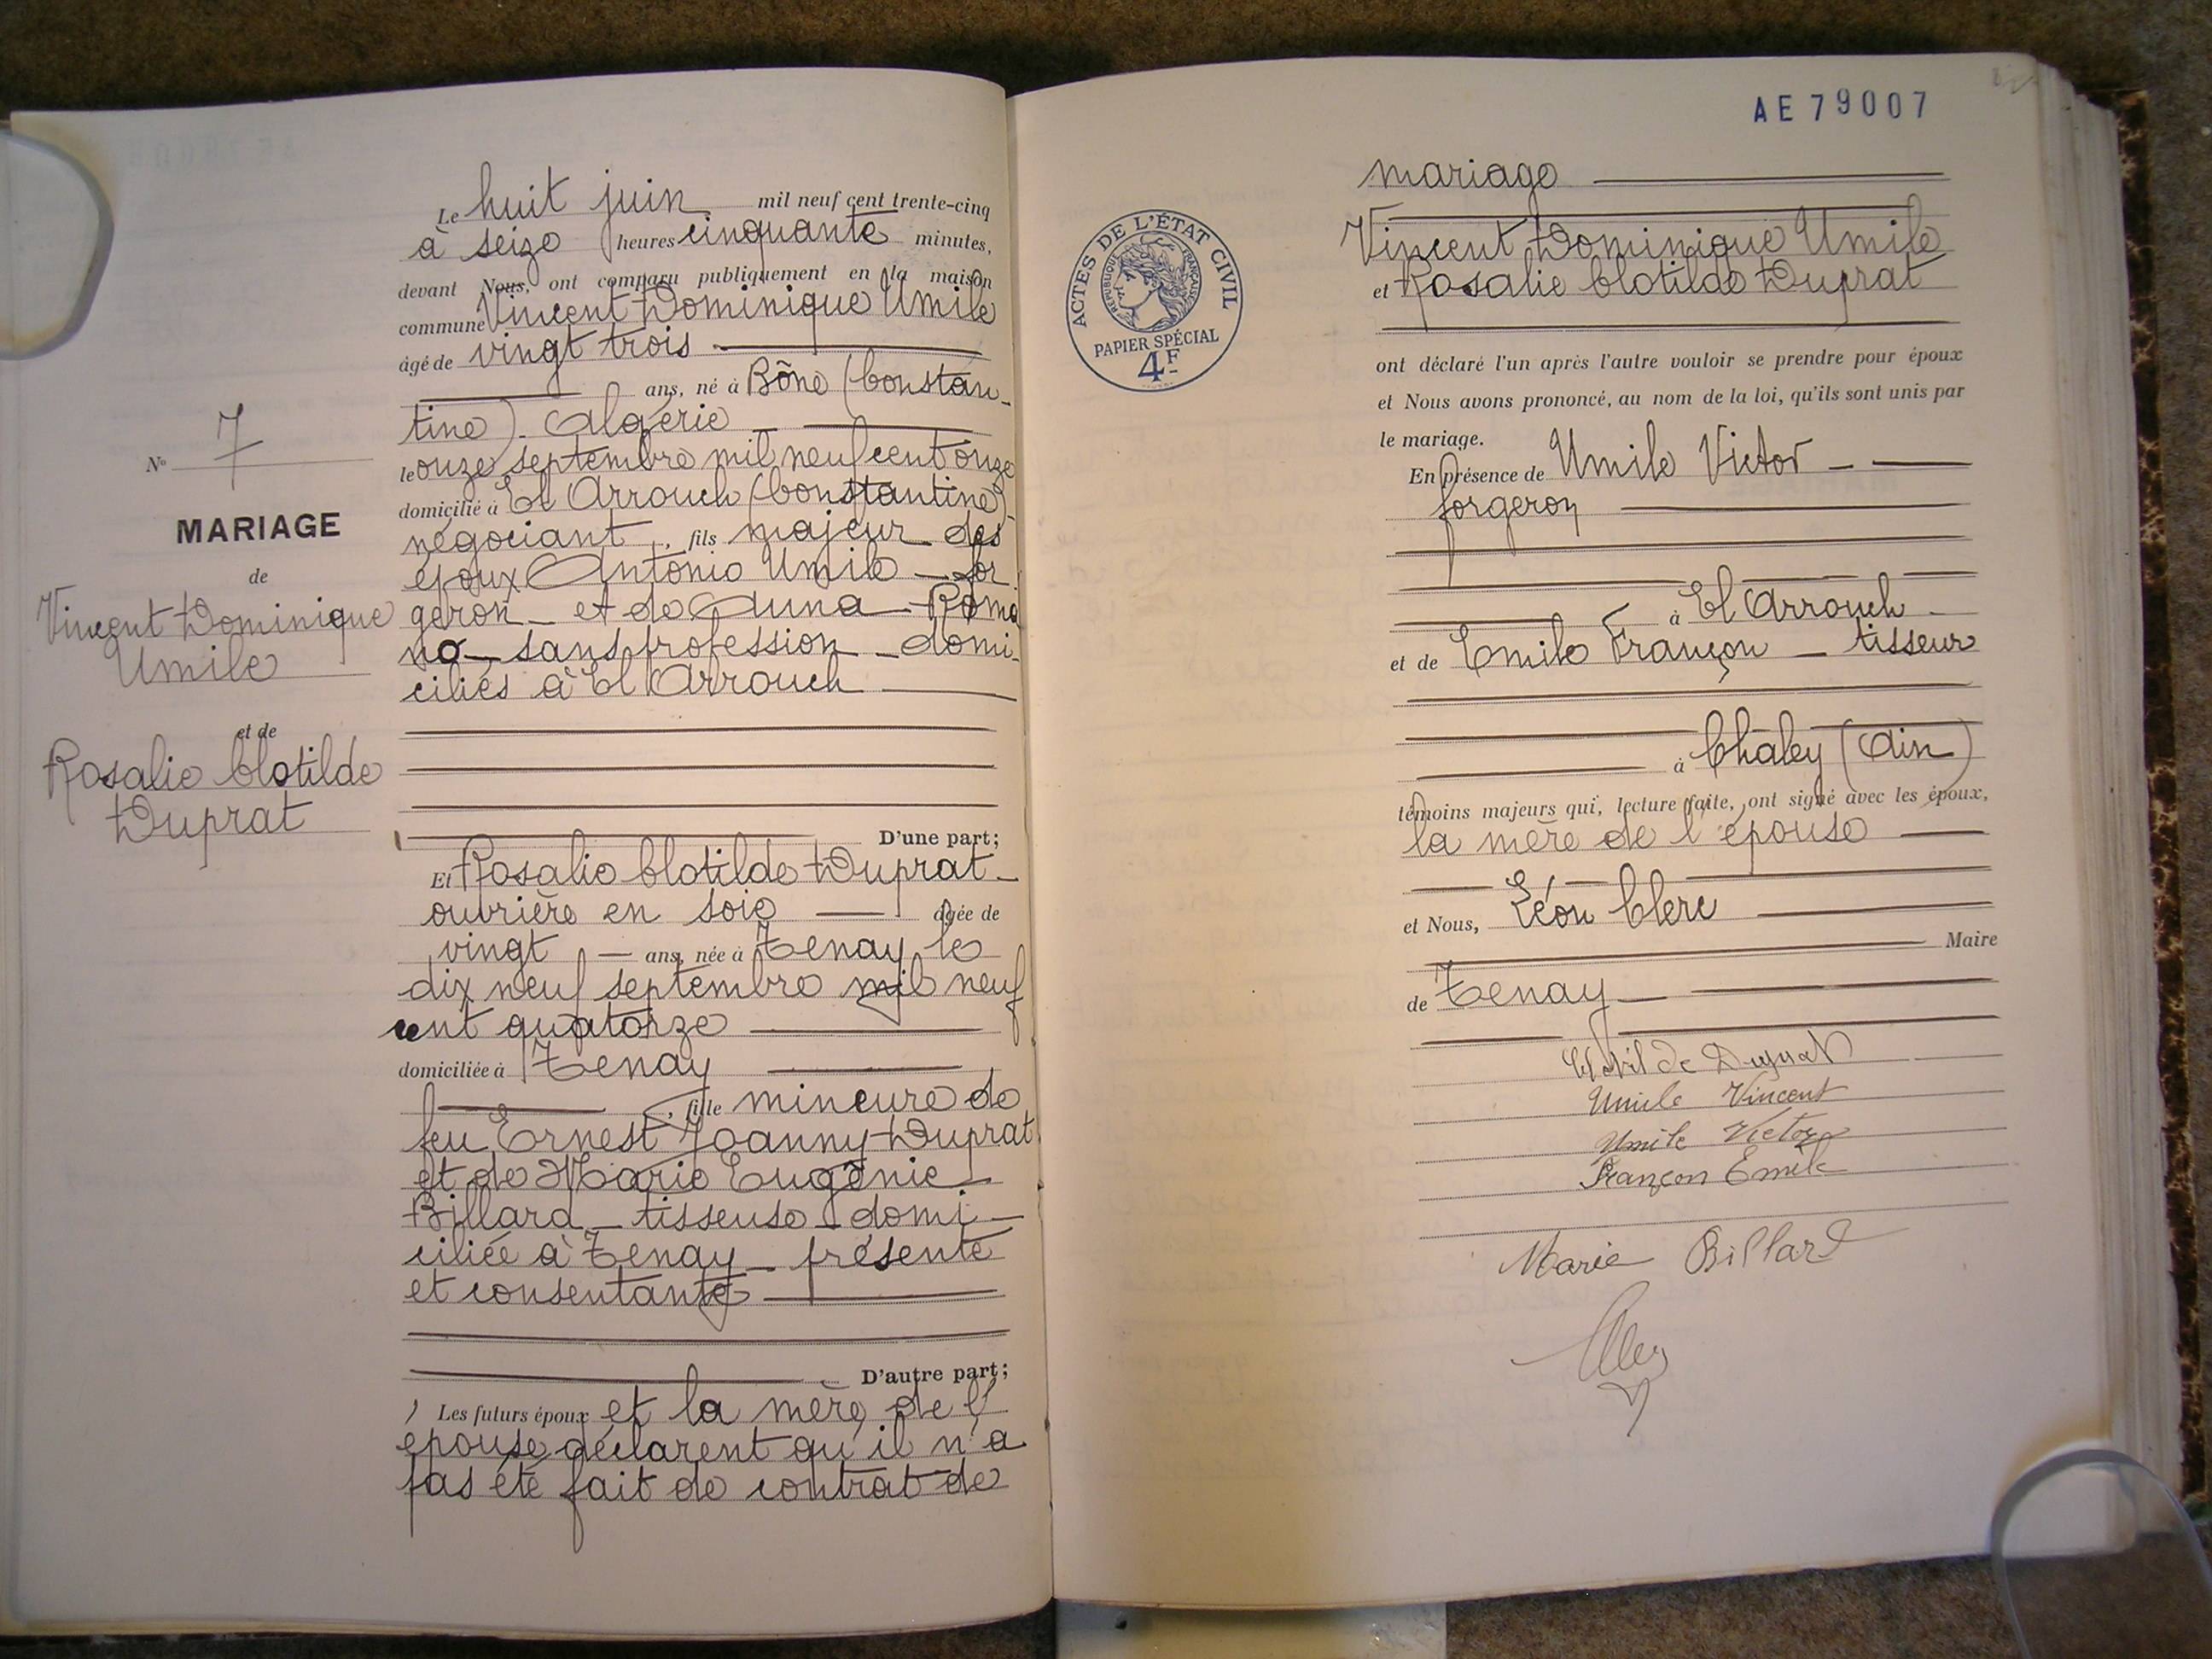 Nº 7
MARIAGE
de
Vincent Dominique
Umile
et de
Rosalie Clotilde
Duprat
Le huit juin mil neuf cent trente-cinq
à seize heures cinquante minutes,
devant Nous, ont comparu publiquement en la maison
commune Vincent Dominique Umile
âgé de vingt trois
ans, né à Bône (Constan-
tine). Algérie
le onze septembre mil neuf cent onze
domicilié à El Arrouch (Constantine)
négociant, fils majeur des
époux Antonio Umile - for
geron - et de Anna Roma
no - sans profession - domi-
ciliés à El Arrouch
D'une part;
Et Rosalie Clotilde Duprat -
ouvrière en soie âgée de
vingt ans, née à Tenay le
dix neuf septembre mil neuf
cent quatorze
domiciliée à Tenay
, fille mineure de
feu Ernest Joanny Duprat
et de Marie Eugénie
Billard - tisseuse - domi-
ciliée à Tenay - présente
et consentante
D'autre part;
Les futurs époux et la mère de l'
épouse déclarent qu'il n'a
pas été fait de contrat de
AE 79007
ACTES DE L'ÉTAT CIVIL
RÉPUBLIQUE FRANÇAISE
PAPIER SPÉCIAL
4F
mariage
Vincent Dominique Umile
et Rosalie Clotilde Duprat
ont déclaré l'un après l'autre vouloir se prendre pour époux
et Nous avons prononcé, au nom de la loi, qu'ils sont unis par
le mariage.
En présence de Umile Victor
forgeron
à El Arrouch
et de Emile Françon - tisseur
à Chaley (Ain)
témoins majeurs qui, lecture faite, ont signé avec les époux,
la mère de l'épouse
et Nous, Léon Clerc
Maire
de Tenay
Clotilde Duprat
Umile Vincent
Umile Victor
Françon Emile
Marie Billard